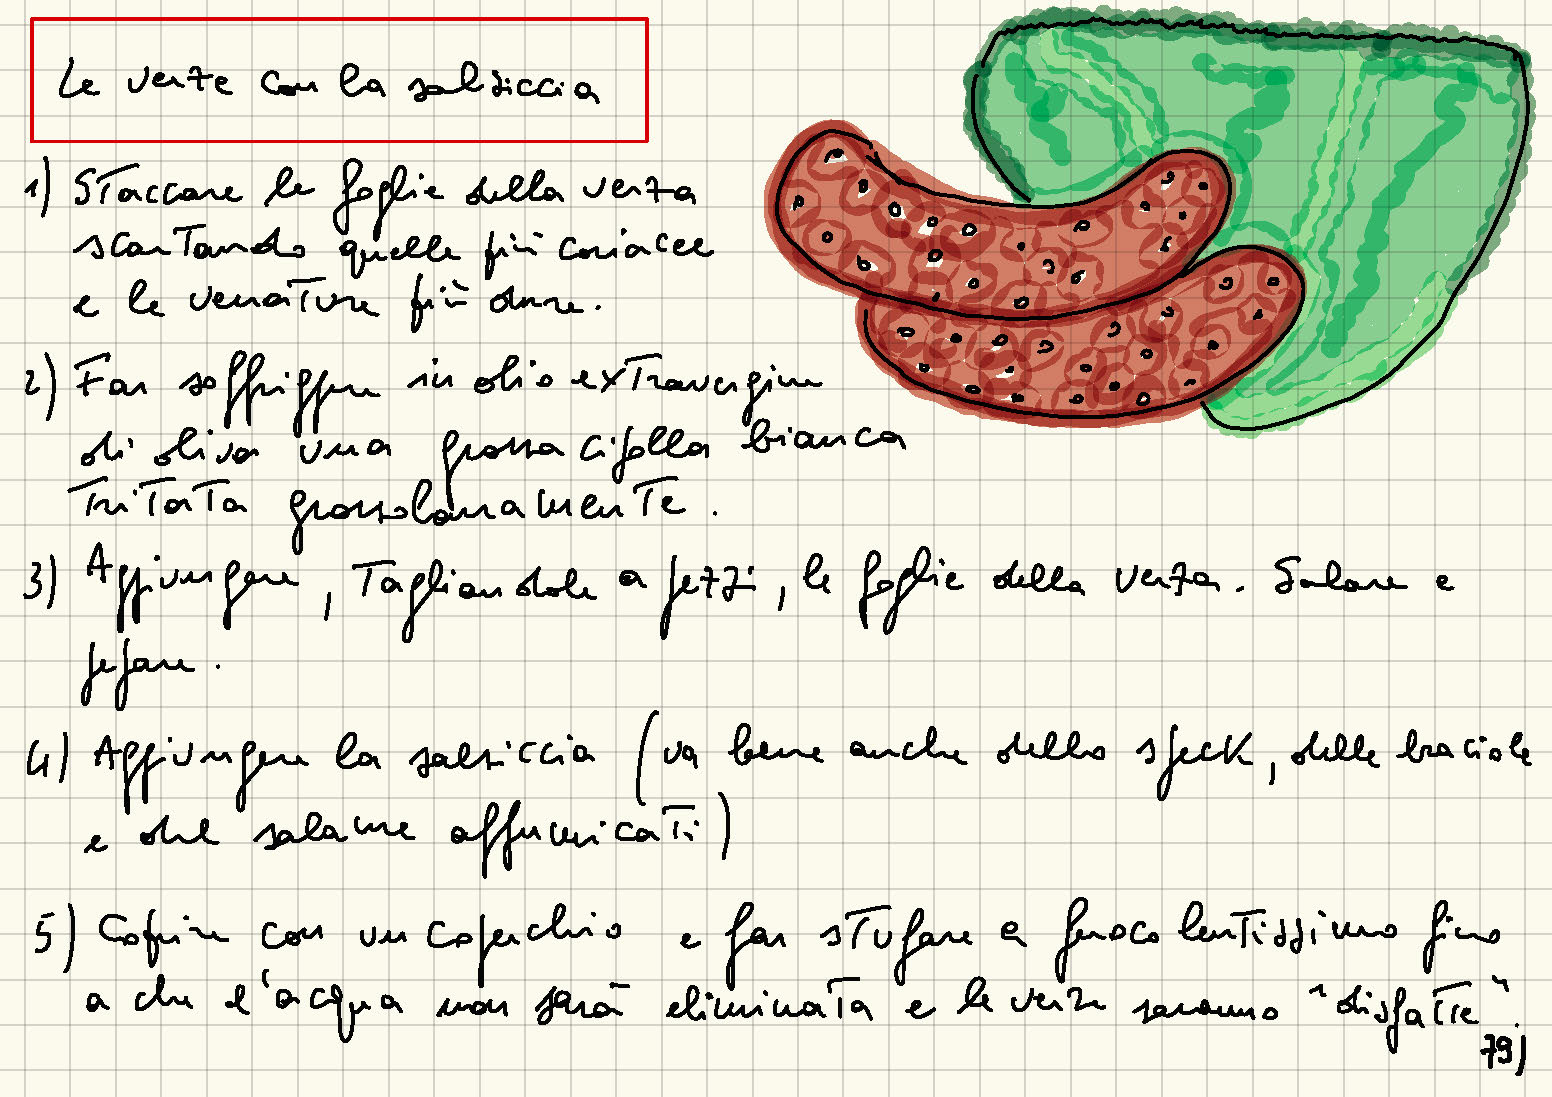 Le verze con la salsiccia
1) Staccare le foglie della verza
scartando quelle più coriacee
e le venature più dure.
2) Far soffriggere in olio extravergine
di oliva una grossa cipolla bianca
tritata grossolanamente.
3) Aggiungere, tagliandole a pezzi, le foglie della verza. Salare e
pepare.
4) Aggiungere la salsiccia (va bene anche dello speck, delle braciole
e del salame affumicati)
5) Coprire con un coperchio e far stufare a fuoco lentissimo fino
a che l'acqua non sarà eliminata e le verze saranno "disfatte".
79)